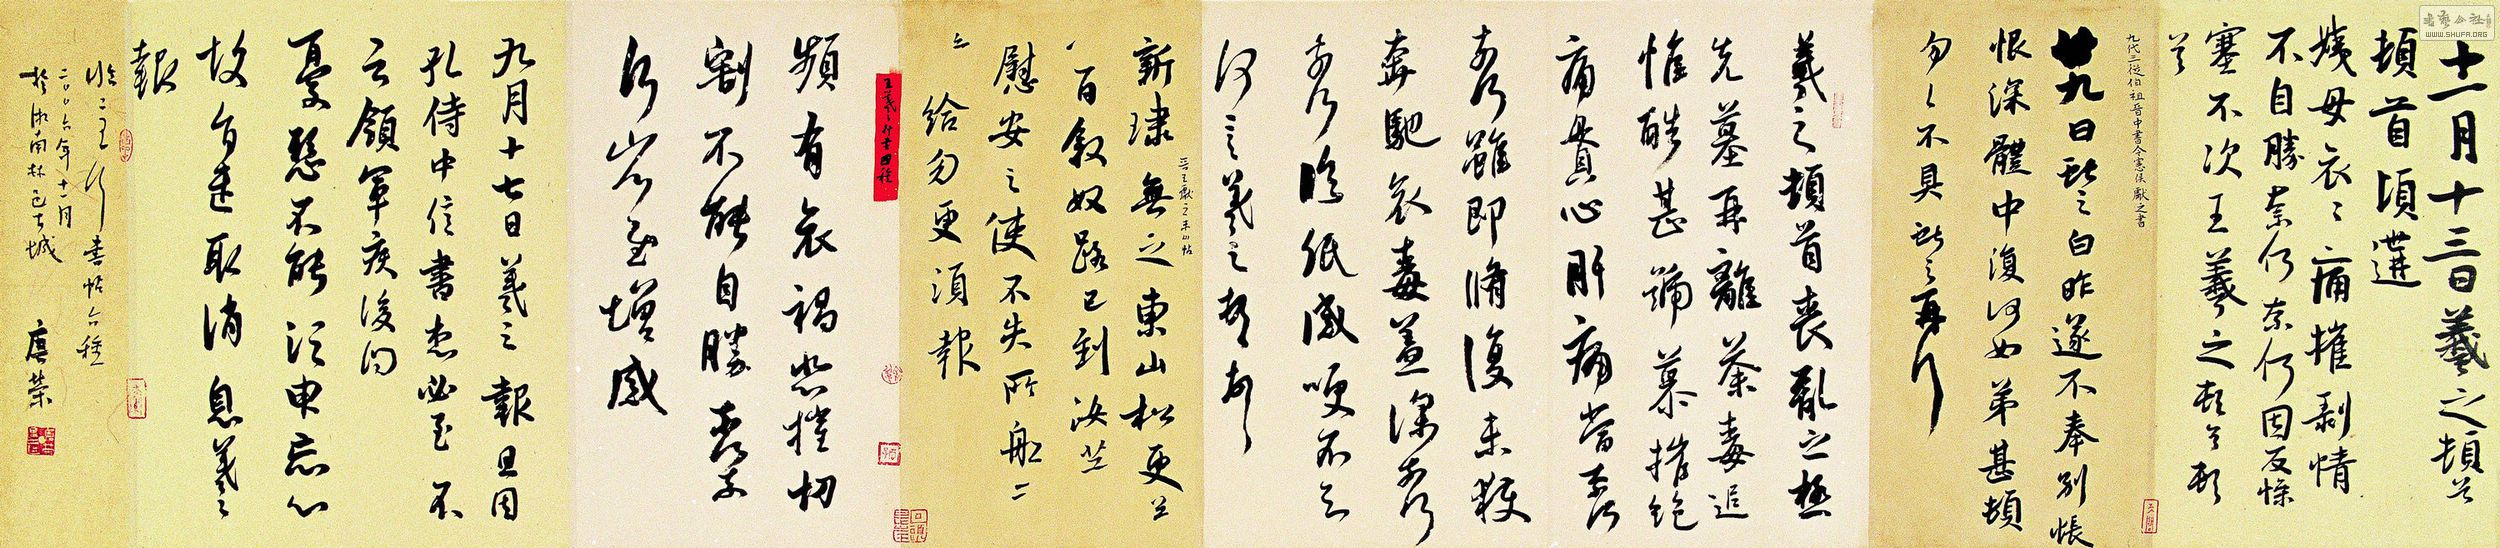 書藝公社
WWW.SHUFA.ORG
十一月十三日羲之頓首
頓首頃遘
姨母哀哀痛摧剥情
不自勝奈何奈何因反慘
塞不次王羲之頓首頓
首
九代三從伯祖晉中書令憲侯獻之書
廿九日獻之白昨遂不奉別悵
恨深體中復何如弟甚頓
匆匆不具獻之再拜
羲之頓首喪亂之極
先墓再離荼毒追
惟酷甚號慕摧絕
痛貫心肝痛當奈何
奈何雖即脩復未獲
奔馳哀毒益深奈何
奈何臨紙感哽不知
何言羲之頓首頓首
新埭無之東山松更送
八百敘奴路已到汝等
慰安之使不失所船二
三給勿更須報
王羲之行書四種
頻有哀禍悲摧切
割不能自勝奈何奈
何省慰增感
九月十七日羲之報且因
孔侍中信書想必至不
知領軍疾後問
憂懸不能須臾忘心
故旨遣取消息羲之
報
臨二王行書帖六種
二〇〇六年十一月
於湖南林邑古城 唐榮